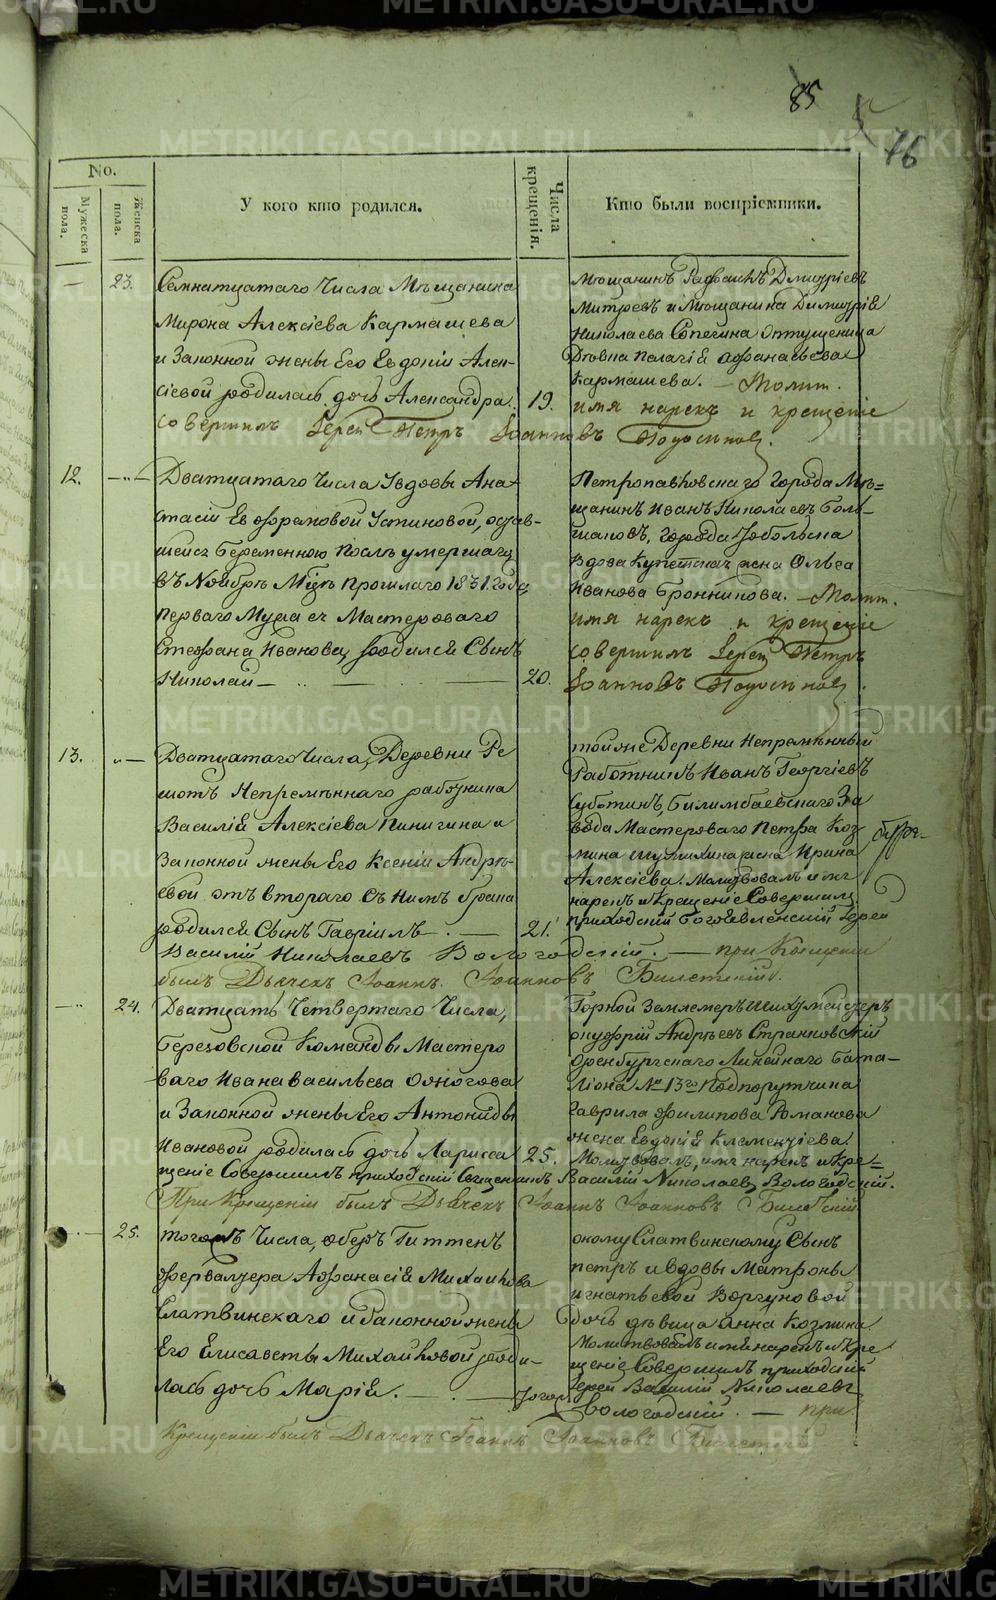 85
76
No.
Мужеска пола.
Женска пола.
У кого кто родился.
Числа крещенія.
Кто были воспріемники.
— 23.
Семнатцатаго Числа Мѣщанина
Мирона Алексѣева Кармашева
и Законной жены Его Евдокіи Алек-
сіевой родилась дочь Александра. 19.
Мѣщанинъ Дмитріевъ
и Мѣщанина Димитрія
Николаева
Пелагія Афанасьева
Кармашева. — Молит.
имя нарекъ и крещеніе
совершилъ Іерей Петръ Іоанновъ
12.
Дватцатаго Числа Увдовы Ана-
стасіи Ефремовой Устиновой, остав-
шейся беременною послѣ умершаго
въ Ноябрѣ Мцѣ прошлаго 1831. года
перваго Мужа ея Мастероваго
Стефана Иванова, родился Сынъ
Николай — 20.
Петропавловскаго города Мѣ=
щанинъ Иванъ Николаевъ
города Тобольска
вдова Купетская жена Ольга
Иванова Бронникова. — Молит.
имя нарекъ и крещеніе
совершилъ Іерей Петръ
Іоанновъ
13.
Дватцатаго Числа, Деревни Ре
шотъ Непремѣннаго работника
Василія Алексіева Пинигина и
Законной жены Его Ксеніи Андрѣ-
евой отъ втораго съ нимъ брака
родился Сынъ Гавріилъ — 21.
тойже Деревни Непремѣнный
Работникъ Иванъ Георгіевъ
Суботинъ, Билимбаевскаго За
вода Мастероваго Петра Коз
мина жена Ирина
Алексіева. Молитвовалъ имя
нарекъ и Крещеніе Совершилъ
приходскій Богоявленскій Іерей
Василій Николаевъ Вологодскій. — при Крещеніи
былъ Дьячекъ Іоаннъ Іоанновъ
24.
Дватцать Четвертаго Числа,
Березовской Команды Мастеро
ваго Ивана Васильева
и Законной жены Его Антониды
Ивановой родилась дочь Ларисса 25.
Горной Землемеръ Шихмейстеръ
Онуфрій Андрѣевъ
Оренбургскаго Линейнаго Бата-
ліона № 13го Подпорутчика
Гаврила Филипова Романова
жена Евдокія Клементіева.
Молитвовалъ, имя нарекъ и Кре=
щеніе Совершилъ приходскій Священникъ Василій Николаевъ Вологодскій.
При Крещеніи былъ Дьячекъ Іоаннъ Іоанновъ
25.
тогожъ Числа, оберъ Гиттенъ
фервалтера Афанасія Михайлова
Слатвинскаго и Законной жены
Его Елисаветы Михайловой роди-
лась дочь Марія. — тогож
оному Слатвинскому Сынъ
петръ и вдовы Матроны
игнатьевой
дочь дѣвица Анна Козмина
Молитвовалъ имя нарекъ и Кре
щеніе Совершилъ приходскій
Іерей Василій Николаевъ
Вологодскій. — при
Крещеніи былъ Дьячекъ Іоаннъ Іоанновъ
METRIKI.GASO-URAL.RU